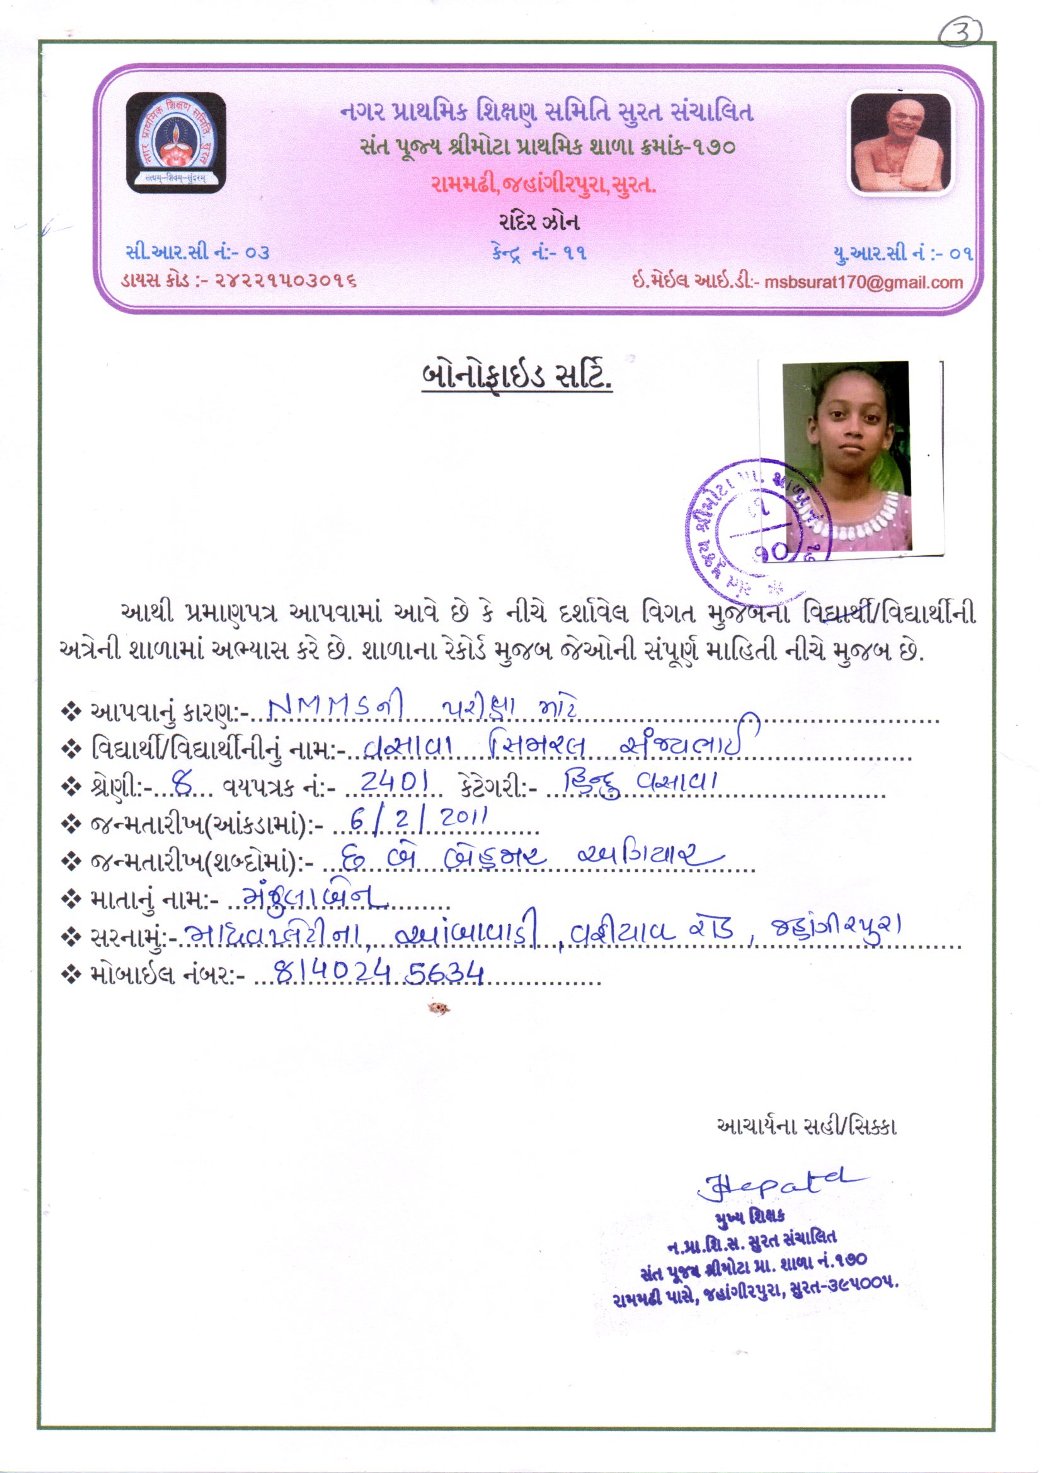 3
નગર પ્રાથમિક શિક્ષણ સમિતિ સુરત સંચાલિત
સંત પૂજ્ય શ્રીમોટા પ્રાથમિક શાળા ક્રમાંક-૧૭૦
રામમઢી,જહાંગીરપુરા,સુરત.
રાંદેર ઝોન
સી.આર.સી નં:- ૦૩ કેન્દ્ર નં:- ૧૧ યુ.આર.સી નં :- ૦૧
ડાયસ કોડ :- ૨૪૨૨૧૫૦૩૦૧૬ ઇ.મેઇલ આઇ.ડી:- msbsurat170@gmail.com
નગર પ્રાથમિક શિક્ષણ સમિતિ, સુરત
સત્યમ્-શિવમ્-સુંદરમ્
બોનોફાઇડ સર્ટિ.
સંત પૂજ્ય શ્રીમોટા પ્રા. શાળા નં. ૧૭૦
આથી પ્રમાણપત્ર આપવામાં આવે છે કે નીચે દર્શાવેલ વિગત મુજબના વિદ્યાર્થી/વિદ્યાર્થીની
અત્રેની શાળામાં અભ્યાસ કરે છે. શાળાના રેકોર્ડ મુજબ જેઓની સંપૂર્ણ માહિતી નીચે મુજબ છે.
❖ આપવાનું કારણ:- NMMSની પરીક્ષા માટે
❖ વિદ્યાર્થી/વિદ્યાર્થીનીનું નામ:- વસાવા સિમરલ સંજયભાઈ
❖ શ્રેણી:- 8 વયપત્રક નં:- 2401 કેટેગરી:- હિન્દુ વસાવા
❖ જન્મતારીખ(આંકડામાં):- 6/2/2011
❖ જન્મતારીખ(શબ્દોમાં):- છ બે બેહજાર અગિયાર
❖ માતાનું નામ:- મંજુલાબેન
❖ સરનામું:- માધવપ્લેટીના, આંબાવાડી, વરીયાવ રોડ, જહાંગીરપુરા
❖ મોબાઇલ નંબર:- 814024 5634
આચાર્યના સહી/સિક્કા
મુખ્ય શિક્ષક
ન.પ્રા.શિ.સ. સુરત સંચાલિત
સંત પૂજ્ય શ્રીમોટા પ્રા. શાળા નં.૧૭૦
રામમઢી પાસે, જહાંગીરપુરા, સુરત-૩૯૫૦૦૫.